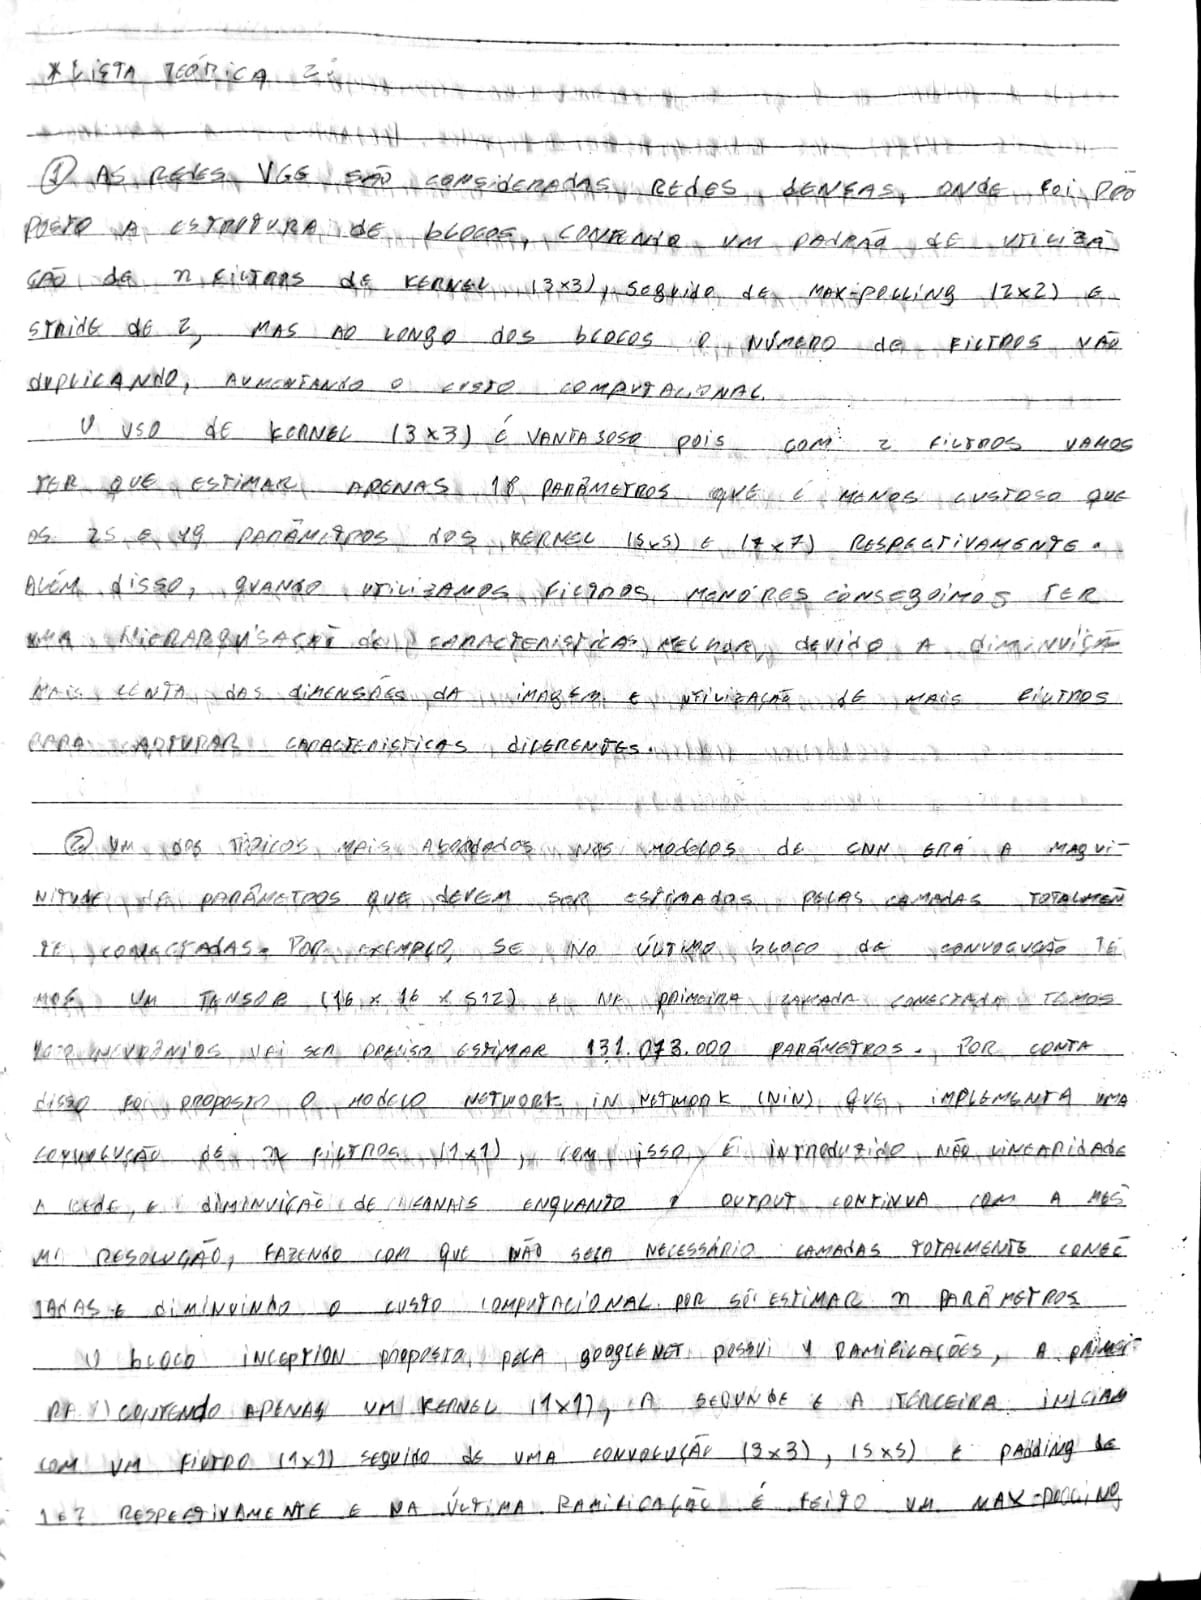 * LISTA TEÓRICA 2:
① AS REDES VGG SÃO CONSIDERADAS REDES DENSAS, ONDE FOI PRO
POSTO A ESTRUTURA DE BLOCOS, CONTENDO UM PADRÃO DE UTILIZA
ÇÃO DE n FILTROS DE KERNEL (3x3), SEGUIDO DE MAX-POLLING (2x2) E
STRIDE DE 2, MAS AO LONGO DOS BLOCOS O NÚMERO DE FILTROS VÃO
DUPLICANDO, AUMENTANDO O CUSTO COMPUTACIONAL.
O USO DE KERNEL (3x3) É VANTAJOSO POIS COM 2 FILTROS VAMOS
TER QUE ESTIMAR APENAS 18 PARÂMETROS QUE É MENOS CUSTOSO QUE
OS 25 E 49 PARÂMETROS DOS KERNEL (5x5) E (7x7) RESPECTIVAMENTE.
ALÉM DISSO, QUANDO UTILIZAMOS FILTROS MENORES CONSEGUIMOS TER
UMA DE CARACTERISTICAS MELHOR, DEVIDO A DIMINUIÇÃ
MAIS LENTA DAS DIMENSÕES DA IMAGEM E UTILIZAÇÃO DE MAIS FILTROS
PARA CARACTERISTICAS DIFERENTES.
② UM DOS TÓPICOS MAIS ABORDADOS NOS MODELOS DE CNN ERA A MAGUI-
NITUDE DE PARÂMETROS QUE DEVEM SER ESTIMADOS PELAS CAMADAS TOTALMEN
TE CONECTADAS. POR EXEMPLO, SE NO ÚLTIMO BLOCO DE CONVOLUÇÃO TE
MOS UM TENSOR (16 x 16 x 512) E NA PRIMEIRA CAMADA CONECTADA TEMOS
NEURÔNIOS VAI SER PRECISO ESTIMAR 131.073.000 PARÂMETROS. POR CONTA
DISSO FOI PROPOSTO O MODELO NETWORK IN NETWORK (NIN) QUE IMPLEMENTA UMA
CONVOLUÇÃO DE n FILTROS (1x1), COM ISSO É INTRODUZIDO NÃO LINEARIDADE
A REDE, E DIMINUIÇÃO DE CANAIS ENQUANTO O OUTPUT CONTINUA COM A MES
MA RESOLUÇÃO, FAZENDO COM QUE NÃO SEJA NECESSÁRIO CAMADAS TOTALMENTE CONEC
TADAS E DIMINUINDO O CUSTO COMPUTACIONAL POR SÓ ESTIMAR n PARÂMETROS
O BLOCO INCEPTION PROPOSTO PELA GOOGLENET POSSUI 4 RAMIFICAÇÕES, A PRIMEI-
RA CONTENDO APENAS UM KERNEL (1x1), A SEGUNDE E A TERCEIRA INICIAM
COM UM FILTRO (1x1) SEGUIDO DE UMA CONVOLUÇÃO (3x3), (5x5) E PADDING DE
1 E 2 RESPECTIVAMENTE E NA ÚLTIMA RAMIFICAÇÃO É FEITO UM MAX-POOLING